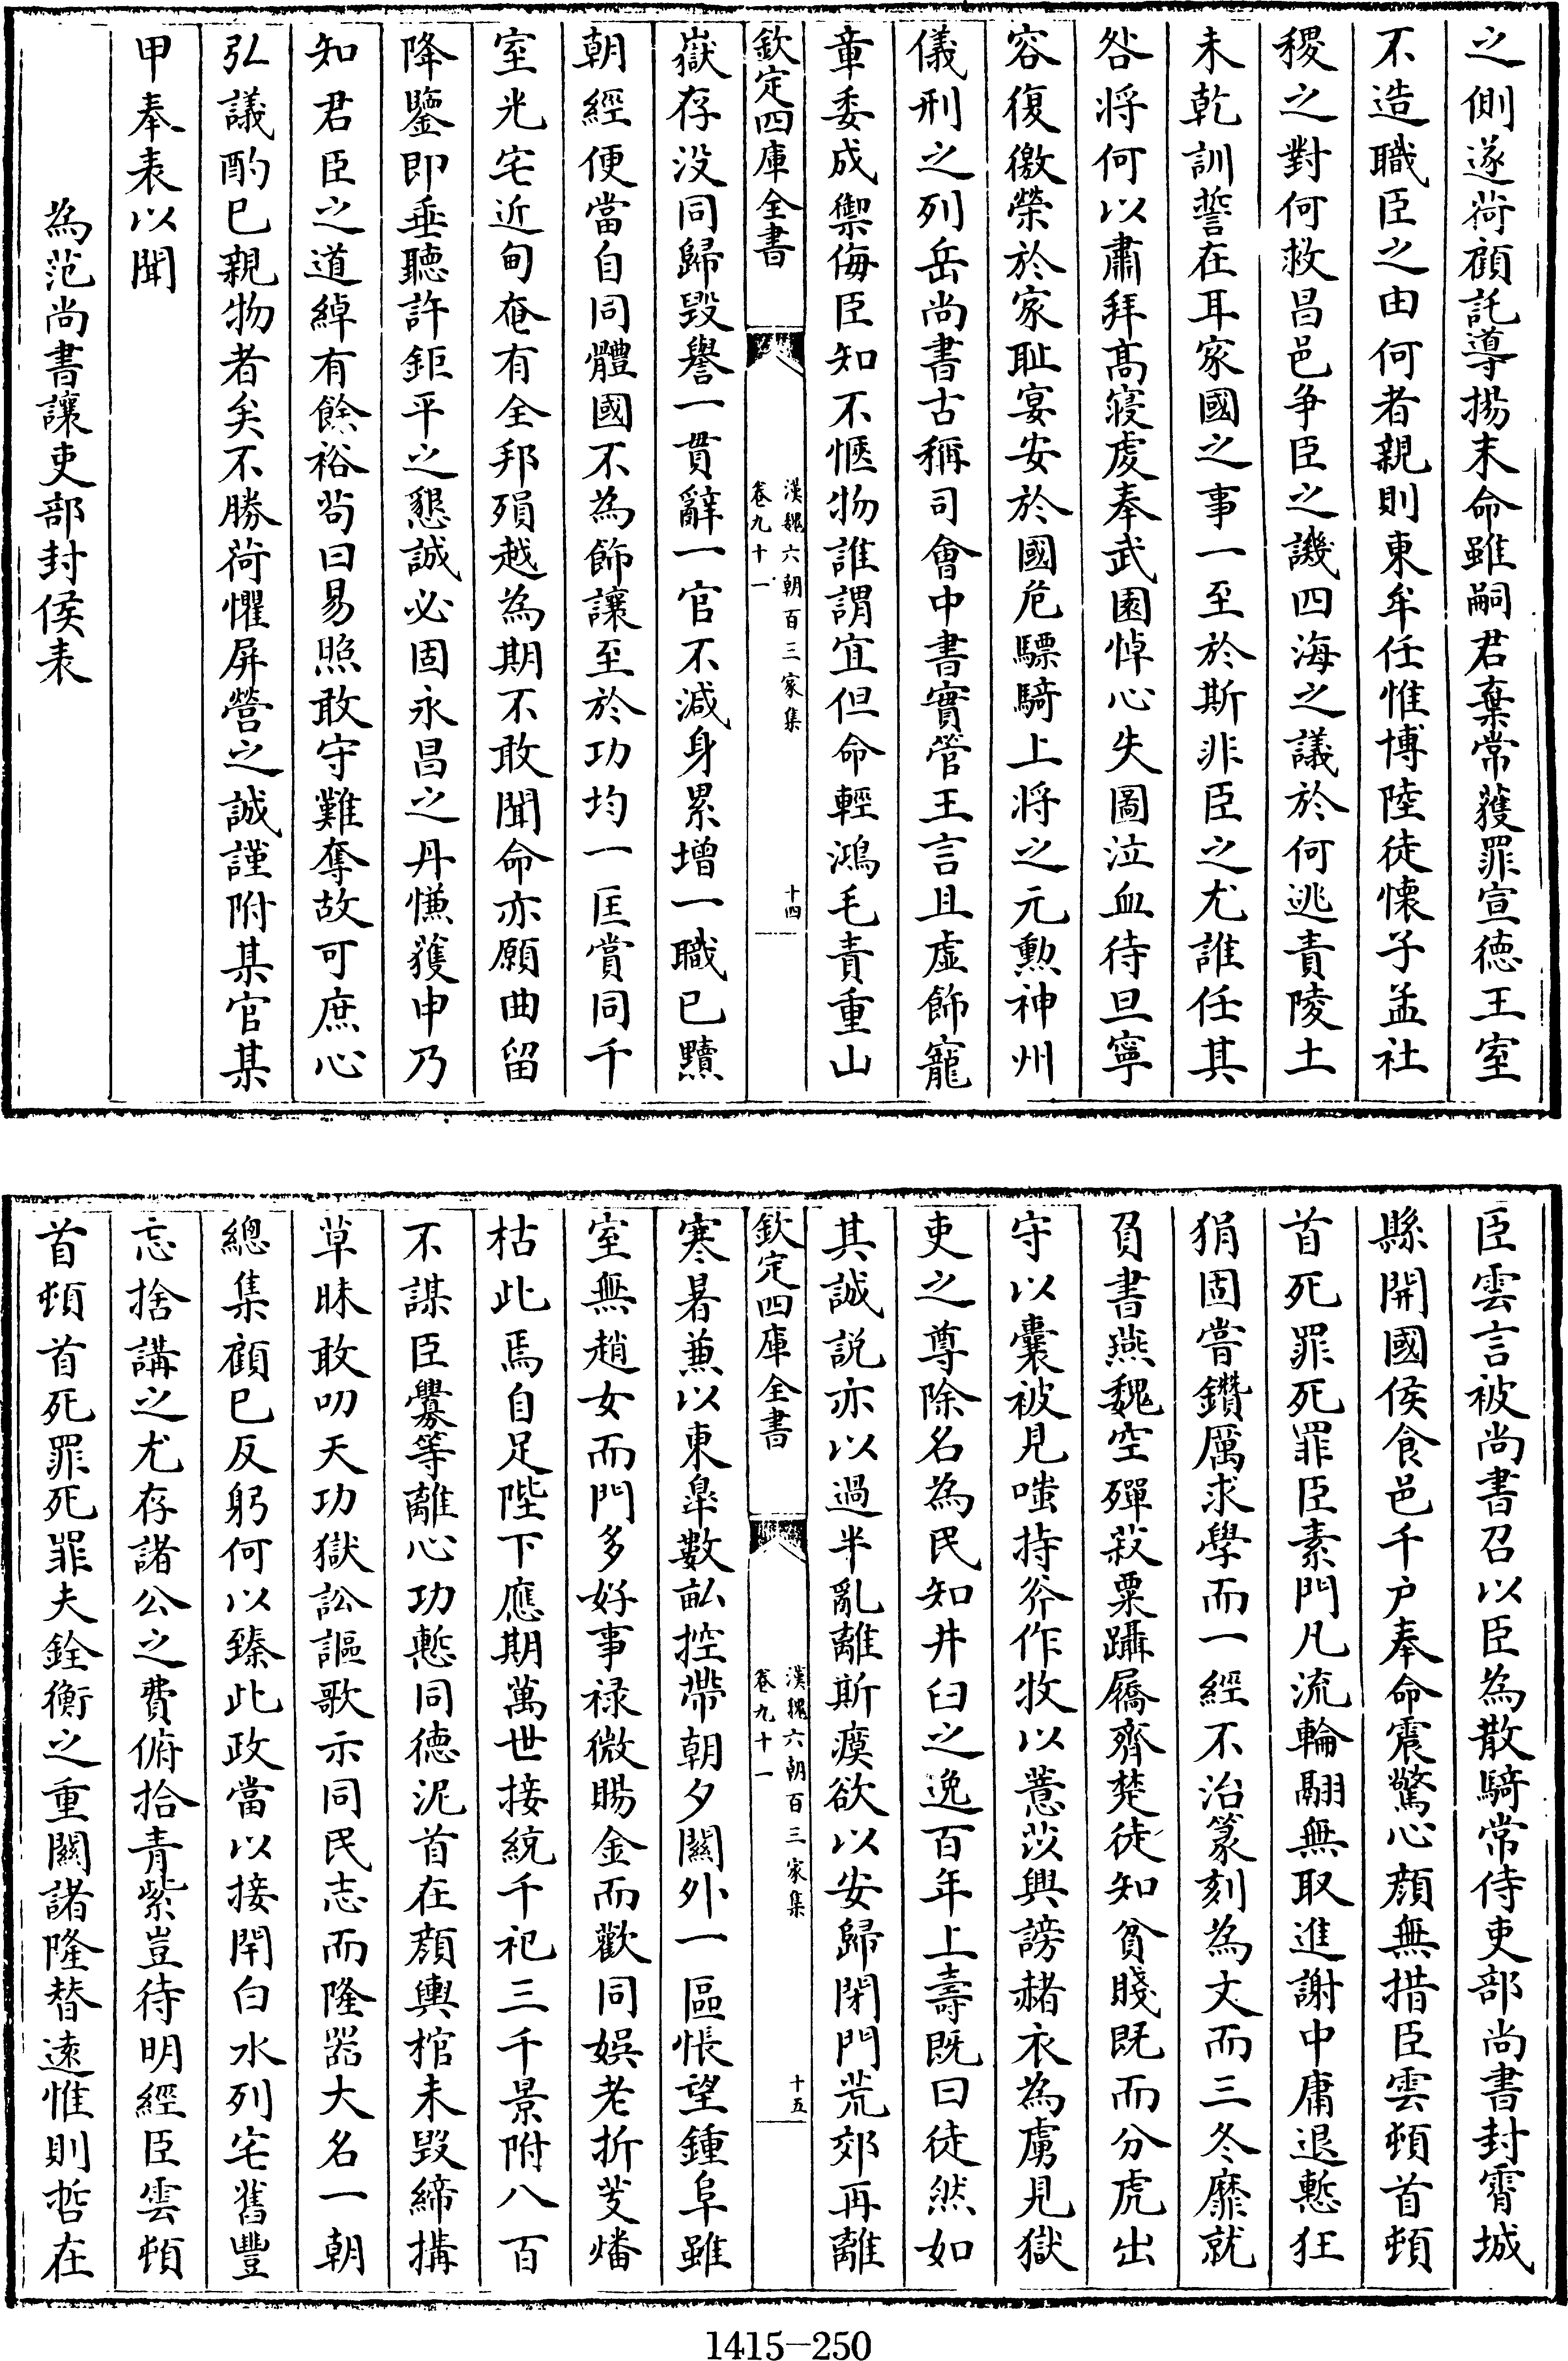 之側遂荷顧託導揚末命雖嗣君棄常獲罪宣德王室
不造職臣之由何者親則東牟任惟博陸徒懷子孟社
稷之對何救昌邑争臣之譏四海之議於何逃責陵土
未乾訓誓在耳家國之事一至於斯非臣之尤誰任其
咎將何以肅拜髙寝虔奉武園悼心失圖泣血待旦寧
容復徼榮於家耻宴安於國危驃騎上將之元勲神州
儀刑之列岳尚書古稱司會中書實管王言且虛飾寵
章委成禦侮臣知不愜物誰謂宜但命輕鴻毛責重山
欽定四庫全書
漢魏六朝百三家集
卷九十一
十四
嶽存没同歸毁譽一貫辭一官不減身累增一職已黷
朝經便當自同體國不為飾讓至於功均一匡賞同千
室光宅近甸奄有全邦殞越為期不敢聞命亦願曲留
降鑒即垂聽許鉅平之懇誠必固永昌之丹慊獲申乃
知君臣之道綽有餘裕苟曰易照敢守難奪故可庶心
弘議酌已親物者矣不勝荷懼屏營之誠謹附某官某
甲奉表以聞
為范尚書讓吏部封侯表
臣雲言被尚書召以臣為散騎常侍吏部尚書封霄城
縣開國侯食邑千户奉命震驚心顔無措臣雲頓首頓
首死罪死罪臣素門凡流輪翮無取進謝中庸退慙狂
狷固嘗鑽厲求學而一經不治篆刻為文而三冬靡就
負書燕魏空殫菽粟躡屩齊楚徒知貧賤既而分虎出
守以囊被見嗤持斧作牧以薏苡興謗赭衣為虜見獄
吏之尊除名為民知井臼之逸百年上壽既曰徒然如
其誠説亦以過半亂離斯瘼欲以安歸閉門荒郊再離
欽定四庫全書
漢魏六朝百三家集
卷九十一
十五
寒暑兼以東臯數畝控帶朝夕關外一區悵望鍾阜雖
室無趙女而門多好事禄微賜金而歡同娛老折芰燔
枯此焉自足陛下應期萬世接統千祀三千景附八百
不謀臣舋等離心功慙同德泥首在顔輿棺未毁締搆
草昧敢叨天功獄訟謳歌示同民志而隆器大名一朝
總集顧已反躬何以臻此政當以接閈白水列宅舊豐
忘捨講之尤存諸公之費俯拾青紫豈待明經臣雲頓
首頓首死罪死罪夫銓衡之重關諸隆替遠惟則哲在
1415-250